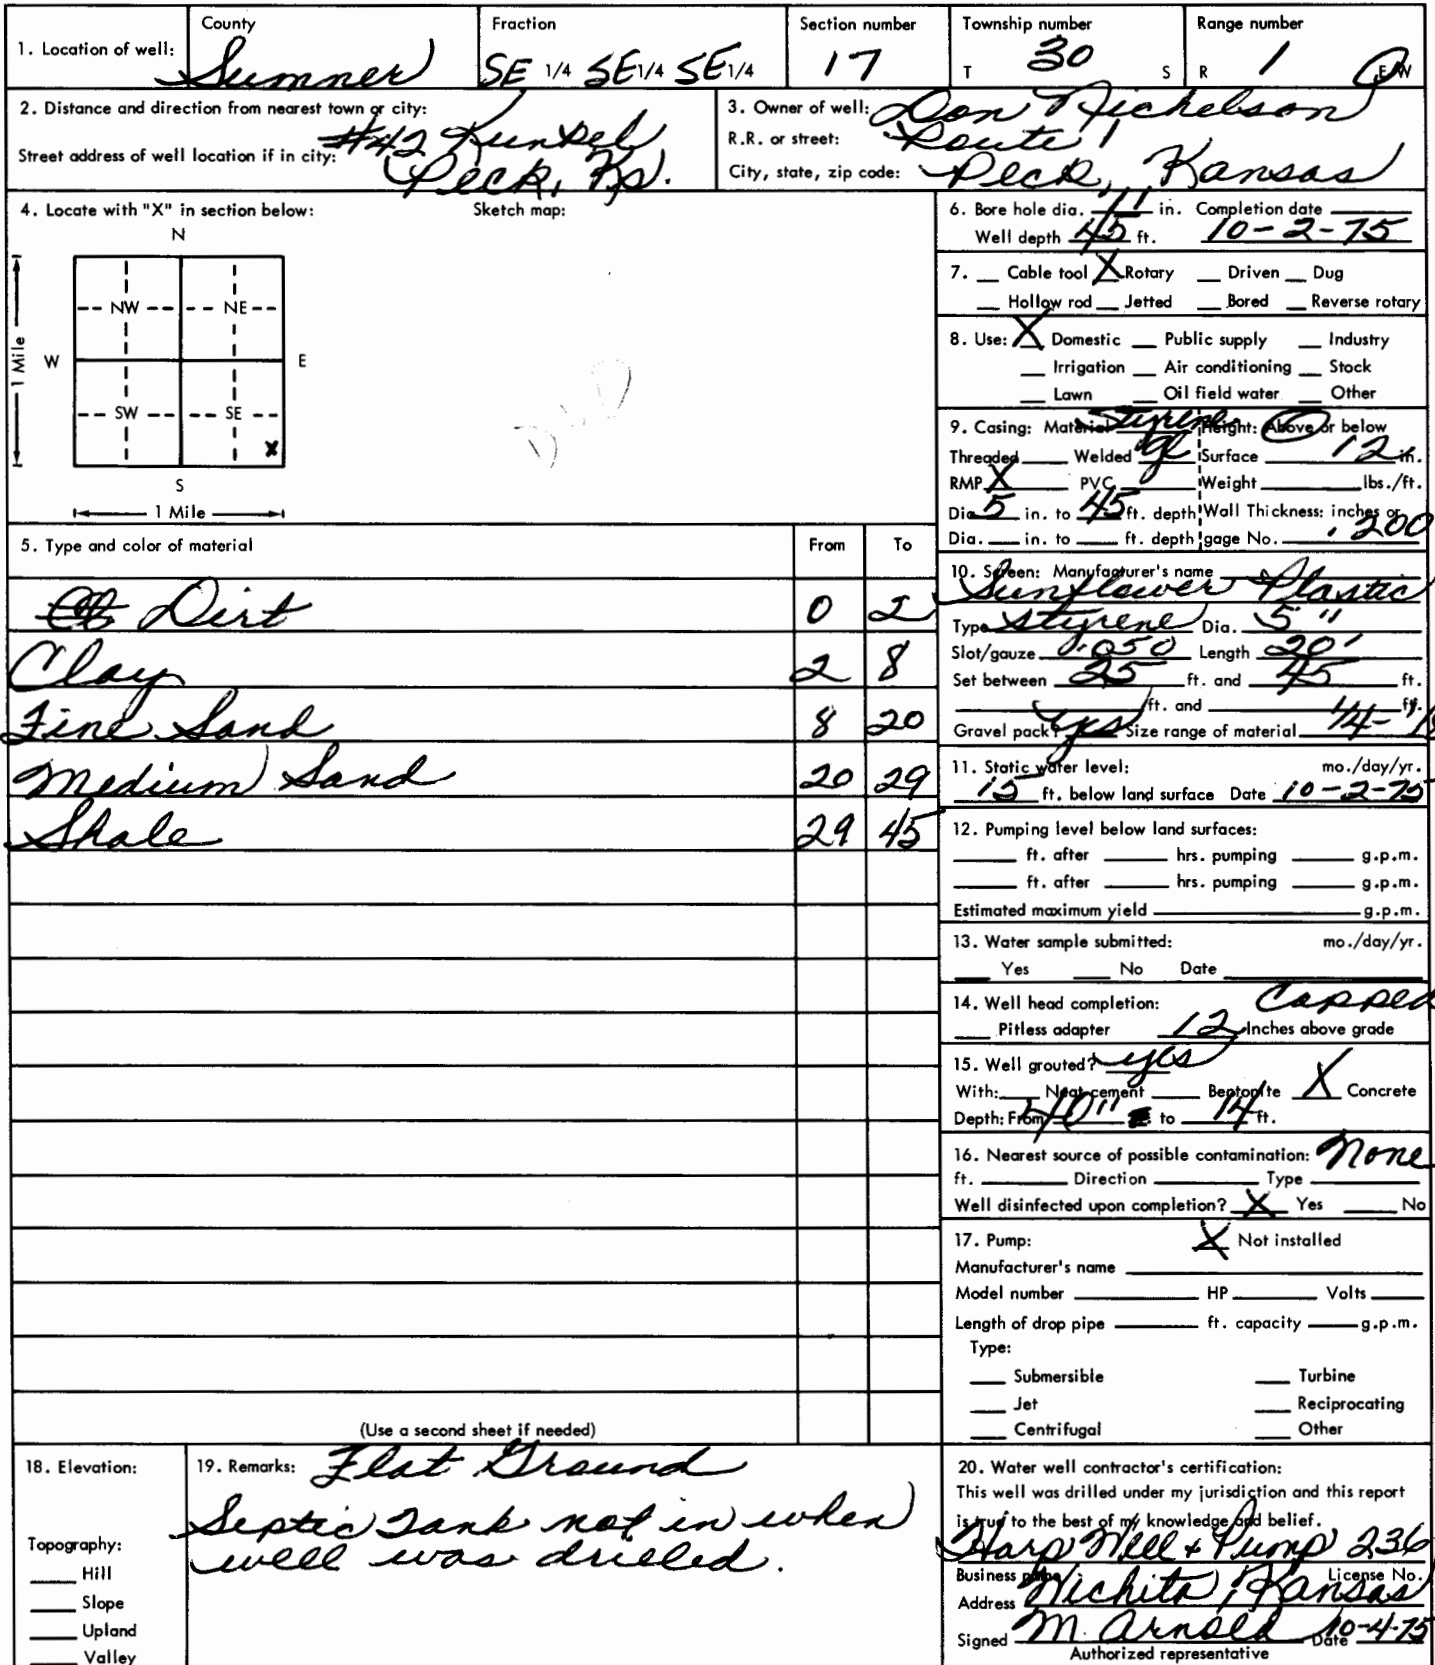 1. Location of well: County Sumner Fraction SE 1/4 SE 1/4 SE 1/4 Section number 17 Township number T 30 S Range number R 1 E/W
2. Distance and direction from nearest town or city: #42 Kunkel
Street address of well location if in city: Peck, Ks.
3. Owner of well: Don Nickelson
R.R. or street: Route 1
City, state, zip code: Peck, Kansas
4. Locate with "X" in section below: Sketch map:
N
NW NE
W E
1 Mile
SW SE
X
S
1 Mile
5. Type and color of material From To
Dirt 0 2
Clay 2 8
Fine Sand 8 20
Medium Sand 20 29
Shale 29 45
(Use a second sheet if needed)
6. Bore hole dia. 11 in. Completion date
Well depth 45 ft. 10-2-75
7. Cable tool X Rotary Driven Dug
Hollow rod Jetted Bored Reverse rotary
8. Use: X Domestic Public supply Industry
Irrigation Air conditioning Stock
Lawn Oil field water Other
9. Casing: Material Styrene Height: Above or below
Threaded Welded gl Surface 12 in.
RMP X PVC Weight lbs./ft.
Dia. 5 in. to 45 ft. depth Wall Thickness: inches or
Dia. in. to ft. depth gage No. .200
10. Screen: Manufacturer's name
Sunflower Plastic
Type styrene Dia. 5"
Slot/gauze 0.050 Length 20'
Set between 25 ft. and 45 ft.
ft. and ft.
Gravel pack? yes Size range of material 1/4-
11. Static water level: mo./day/yr.
15 ft. below land surface Date 10-2-75
12. Pumping level below land surfaces:
ft. after hrs. pumping g.p.m.
ft. after hrs. pumping g.p.m.
Estimated maximum yield g.p.m.
13. Water sample submitted: mo./day/yr.
Yes No Date
14. Well head completion: Capped
Pitless adapter 12 Inches above grade
15. Well grouted? yes
With: Neat cement Bentonite X Concrete
Depth: From 40" to 14 ft.
16. Nearest source of possible contamination: None
ft. Direction Type
Well disinfected upon completion? X Yes No
17. Pump: X Not installed
Manufacturer's name
Model number HP Volts
Length of drop pipe ft. capacity g.p.m.
Type:
Submersible Turbine
Jet Reciprocating
Centrifugal Other
18. Elevation:
Topography:
Hill
Slope
Upland
Valley
19. Remarks: Flat Ground
Septic Tank not in when
well was drilled.
20. Water well contractor's certification:
This well was drilled under my jurisdiction and this report
is true to the best of my knowledge and belief.
Harp Well + Pump 236
Business name License No.
Address Wichita, Kansas
Signed M. Arnold Date 10-4-75
Authorized representative